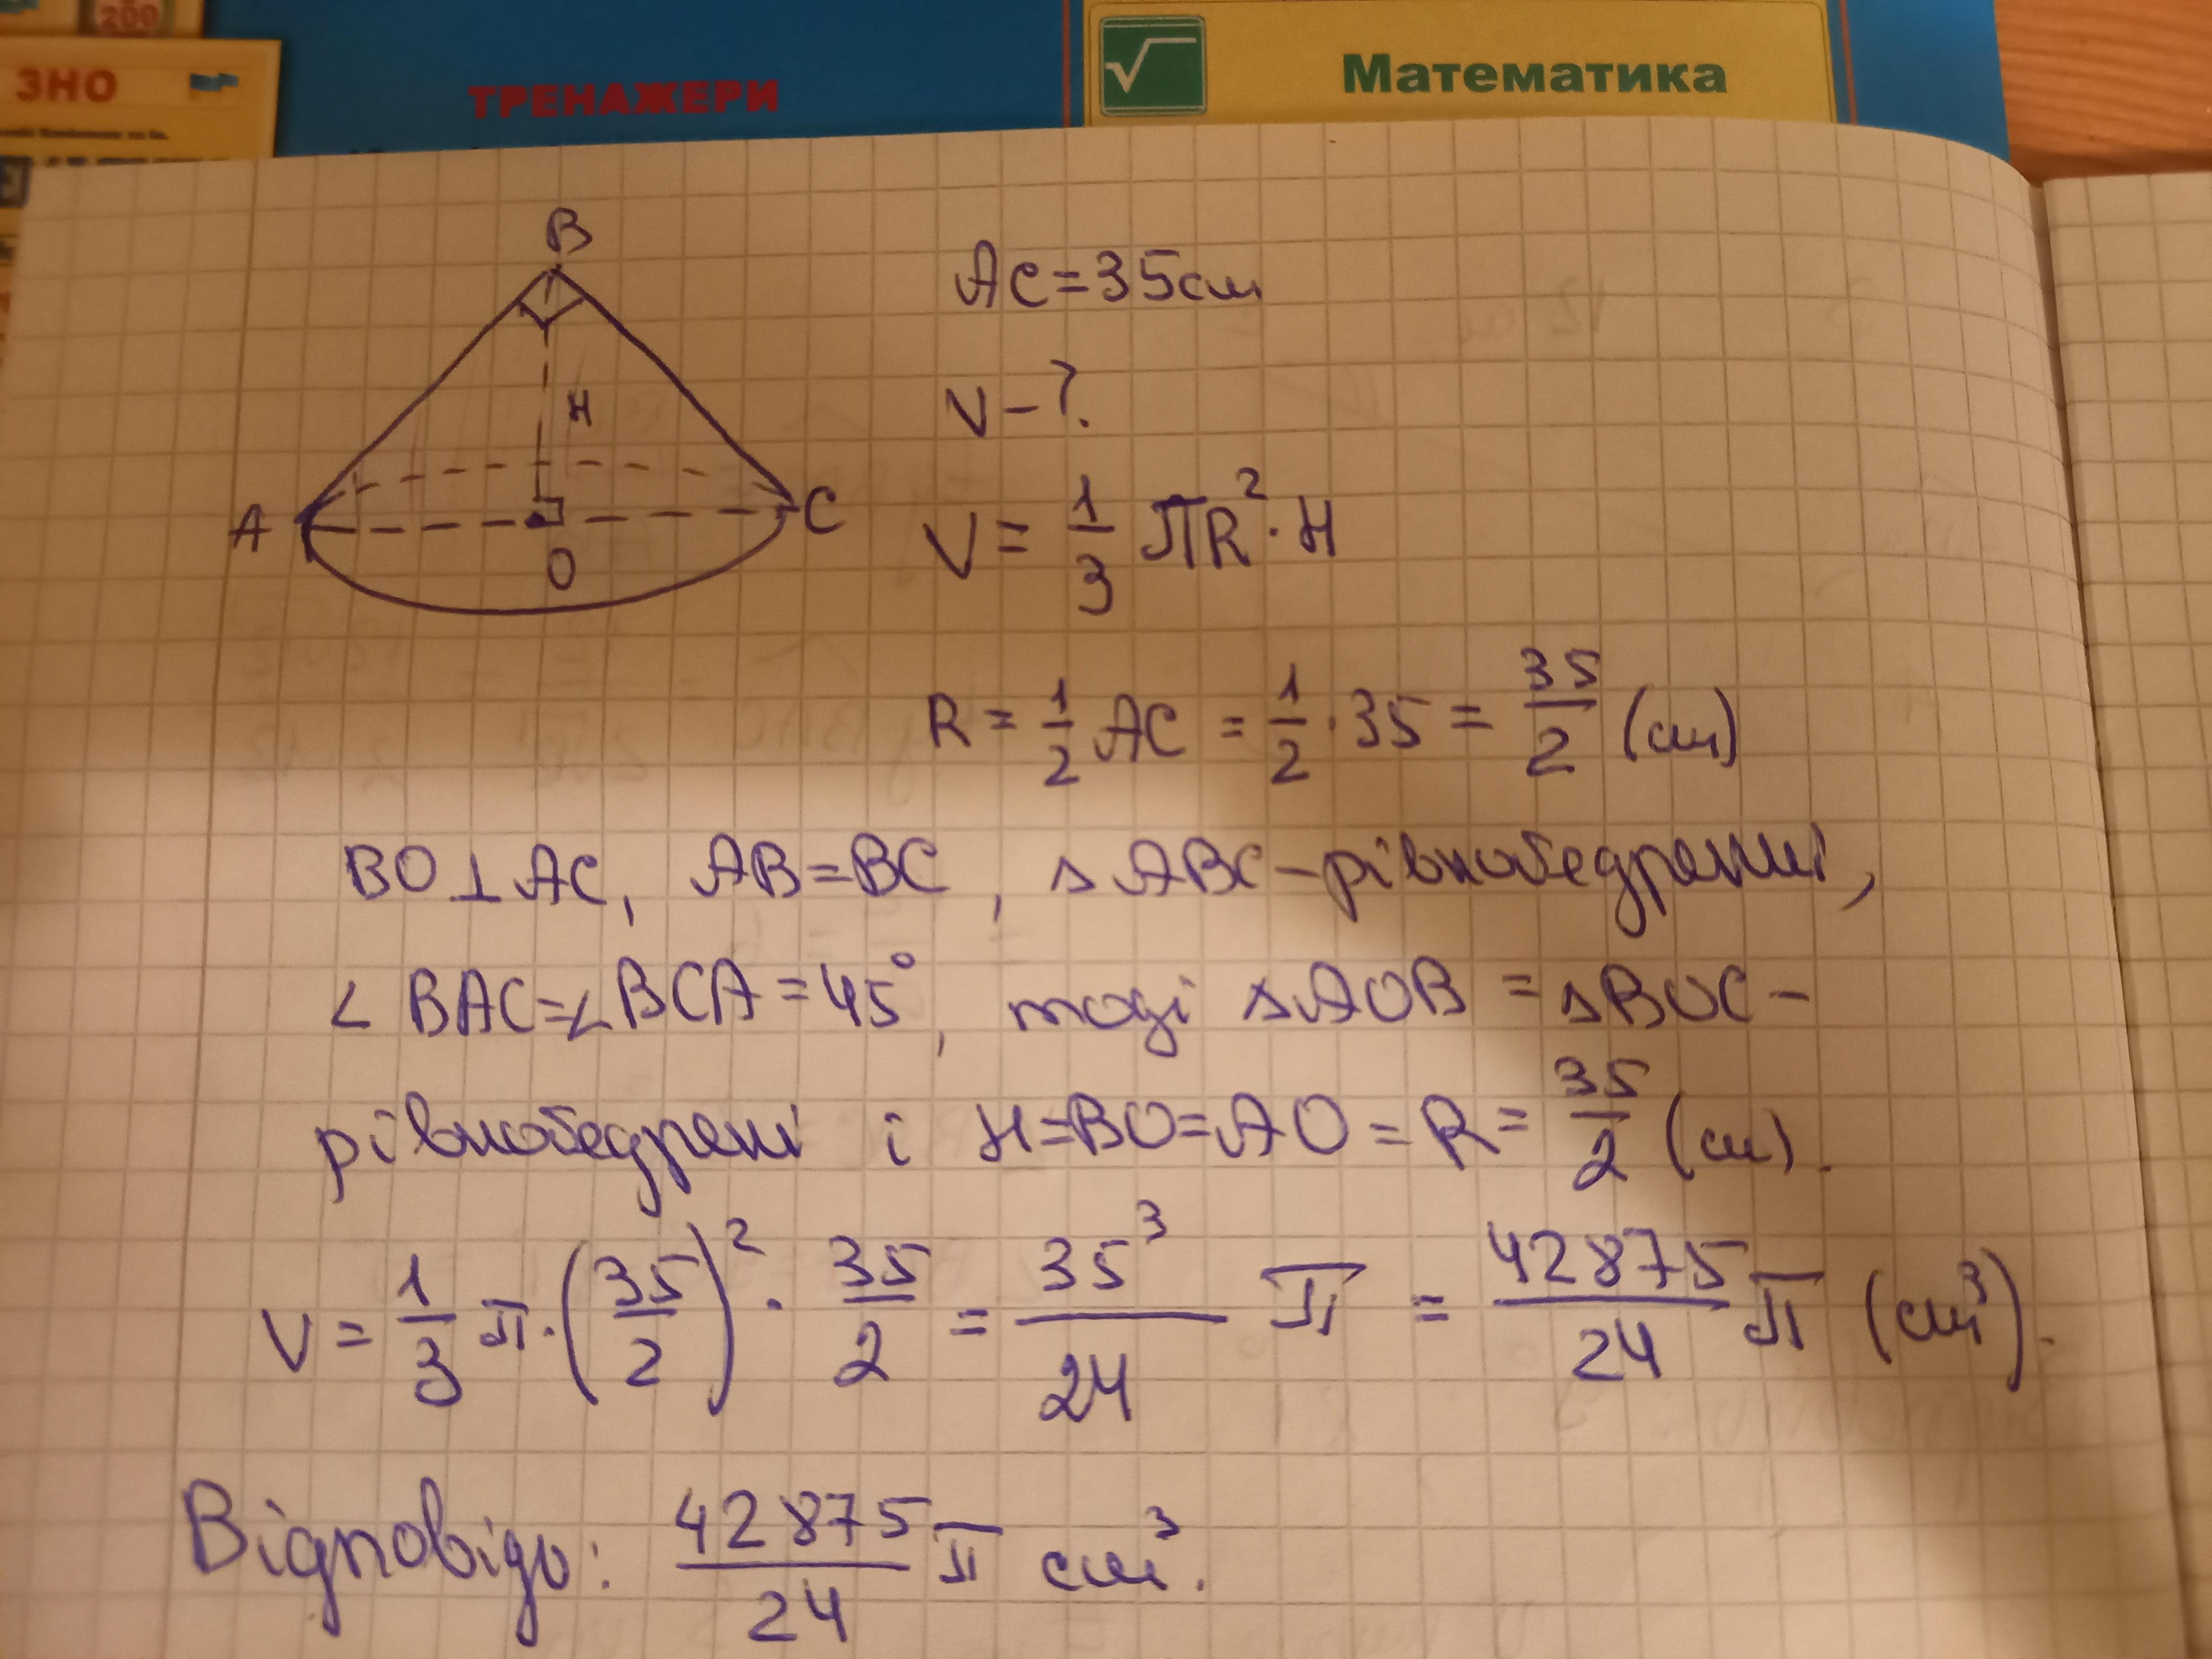 200
ЗНО
ТРЕНАЖЕРИ
√
Математика
B
H
A
O
C
AC = 35 см
V - ?
V = 1/3 πR² · H
R = 1/2 AC = 1/2 · 35 = 35/2 (см)
BO ⊥ AC, AB = BC, △ABC - рівнобедрений,
∠BAC = ∠BCA = 45°, тоді △AOB = △BOC -
рівнобедрені і H = BO = AO = R = 35/2 (см).
V = 1/3 π · (35/2)² · 35/2 = 35³/24 π = 42875/24 π (см³).
Відповідь: 42875/24 π см³.